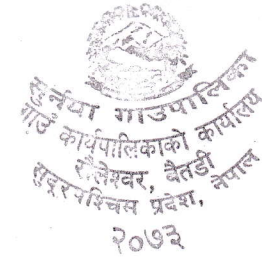 सुर्नया गाउँपालिका
गाउँ कार्यपालिकाको कार्यालय
रौलेश्वर, बैतडी
सुदूरपश्चिम प्रदेश, नेपाल
२०७३